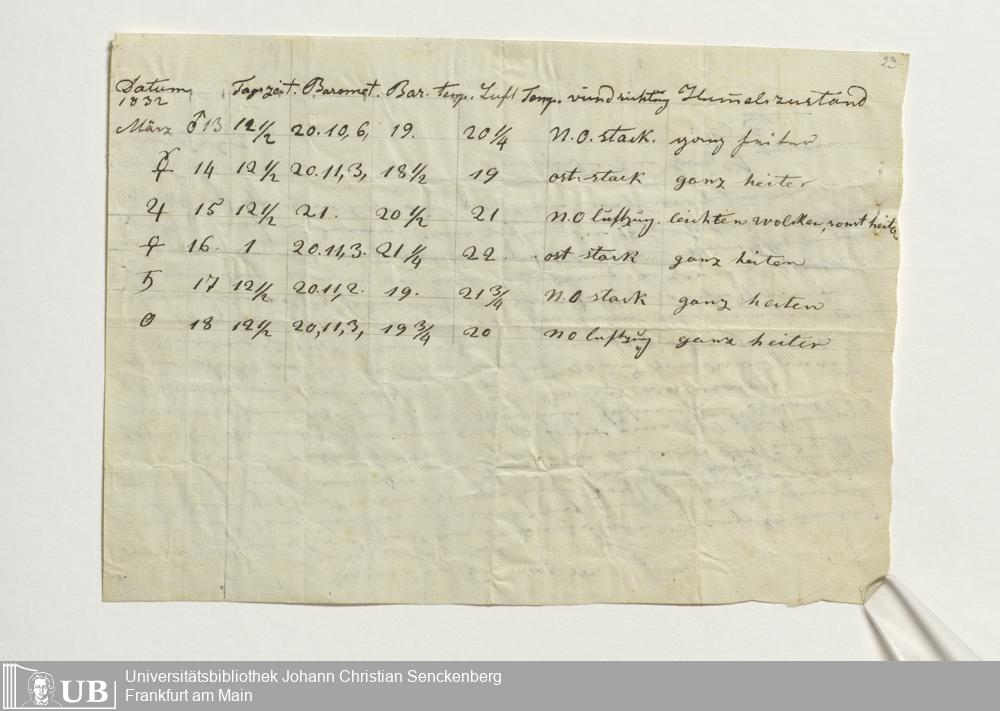 29
Datum Tagszeit. Baromet. Bar. temp. Luft Temp. vindrichtũg Him̄elszustand
1832
März ♂ 13 12½ 20.10,6, 19. 20¼ N.O. stark. ganz heiter
☿ 14 12½ 20.11,3, 18½ 19 ost. stark ganz heiter
♃ 15 12½ 21. 20½ 21 N.O luftzũg. leichten wolcken, sonst heiter
♀ 16. 1 20.11,3. 21¼ 22. ost stark ganz heiter
♄ 17 12½ 20.11,2. 19. 21¾ N.O. stark ganz heiter
☉ 18 12½ 20,11,3, 19¾ 20 NO luftzũg ganz heiter
UB Universitätsbibliothek Johann Christian Senckenberg
Frankfurt am Main